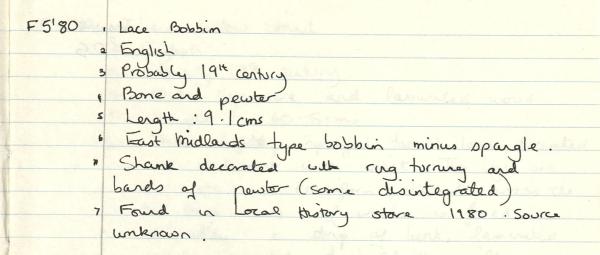 F5'80 1 Lace Bobbin
2 English
3 Probably 19th century
4 Bone and pewter
5 Length : 9.1cms
6 East Midlands type bobbin minus spangle.
" Shank decorated with ring turning and
bands of pewter (some disintegrated)
7 Found in Local History store 1980. Source
unknown.